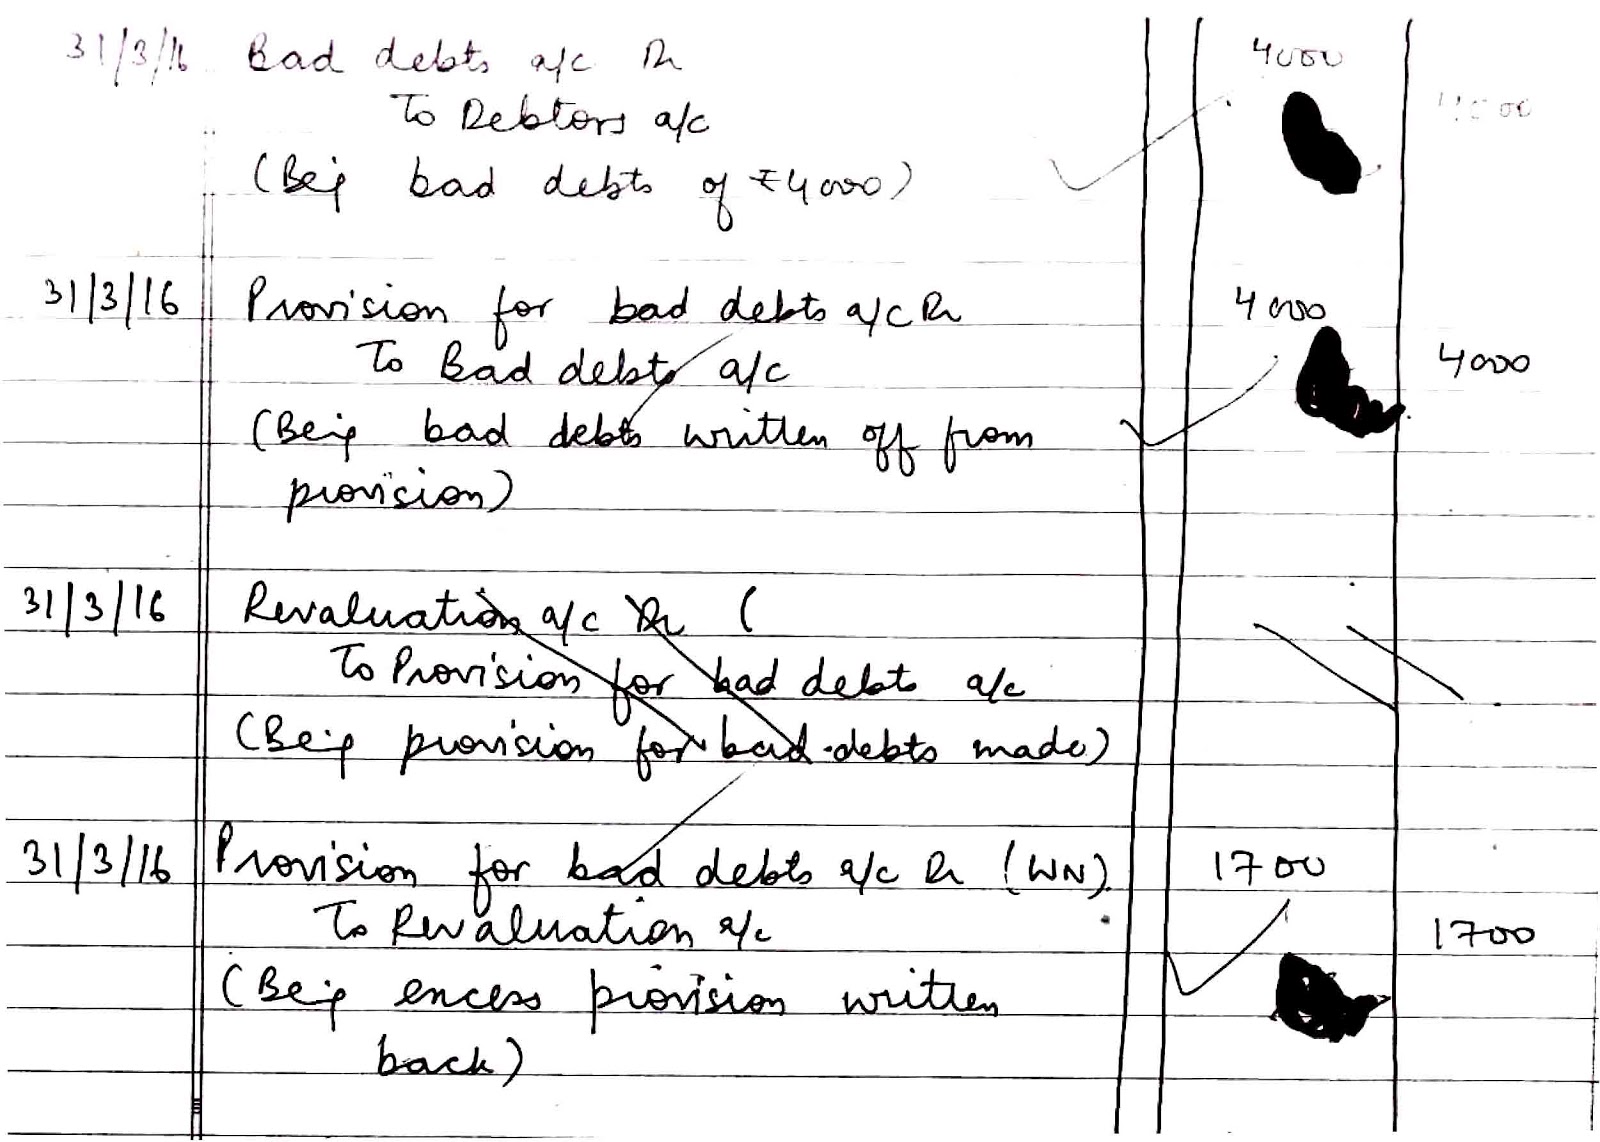 31/3/16 Bad debts a/c Dr 4000
To Debtors a/c 4000
(Being bad debts of ₹4000)
31/3/16 Provision for bad debts a/c Dr 4000
To Bad debts a/c 4000
(Being bad debts written off from
provision)
31/3/16 Revaluation a/c Dr (
To Provision for bad debts a/c
(Being provision for bad debts made)
31/3/16 Provision for bad debts a/c Dr (WN) 1700
To Revaluation a/c 1700
(Being excess provision written
back)